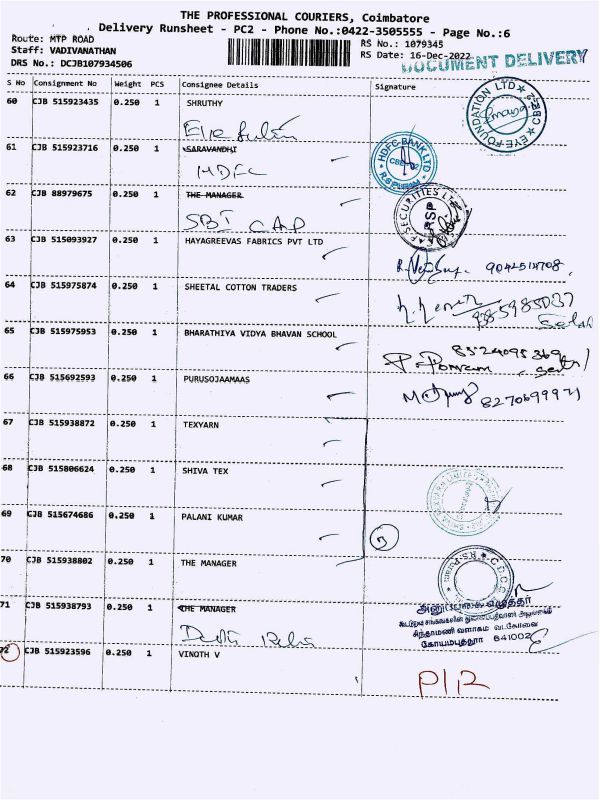 THE PROFESSIONAL COURIERS, Coimbatore
Delivery Runsheet - PC2 - Phone No.:0422-3505555 - Page No.:6
Route: MTP ROAD
Staff: VADIVANATHAN
DRS No.: DCJB107934506
RS No.: 1079345
RS Date: 16-Dec-2022
DOCUMENT DELIVERY
S No Consignment No Weight PCS Consignee Details Signature
60 CJB 515923435 0.250 1 SHRUTHY
EYE FOUNDATION LTD CBE-2
61 CJB 515923716 0.250 1 SARAVANDHI
HDFC
HDFC BANK LTD
R.S PURAM
62 CJB 88979675 0.250 1 THE MANAGER
SBI CAP
SECURITIES
RSP
63 CJB 515093927 0.250 1 HAYAGREEVAS FABRICS PVT LTD
64 CJB 515975874 0.250 1 SHEETAL COTTON TRADERS
65 CJB 515975953 0.250 1 BHARATHIYA VIDYA BHAVAN SCHOOL
8524095369
66 CJB 515692593 0.250 1 PURUSOJAAMAAS
8270699971
67 CJB 515938872 0.250 1 TEXYARN
68 CJB 515806624 0.250 1 SHIVA TEX
69 CJB 515674686 0.250 1 PALANI KUMAR
70 CJB 515938802 0.250 1 THE MANAGER
71 CJB 515938793 0.250 1 THE MANAGER
சிந்தாமணி வளாகம் வடகோவை
கோயம்புத்தூர் 641002
72 CJB 515923596 0.250 1 VINOTH V